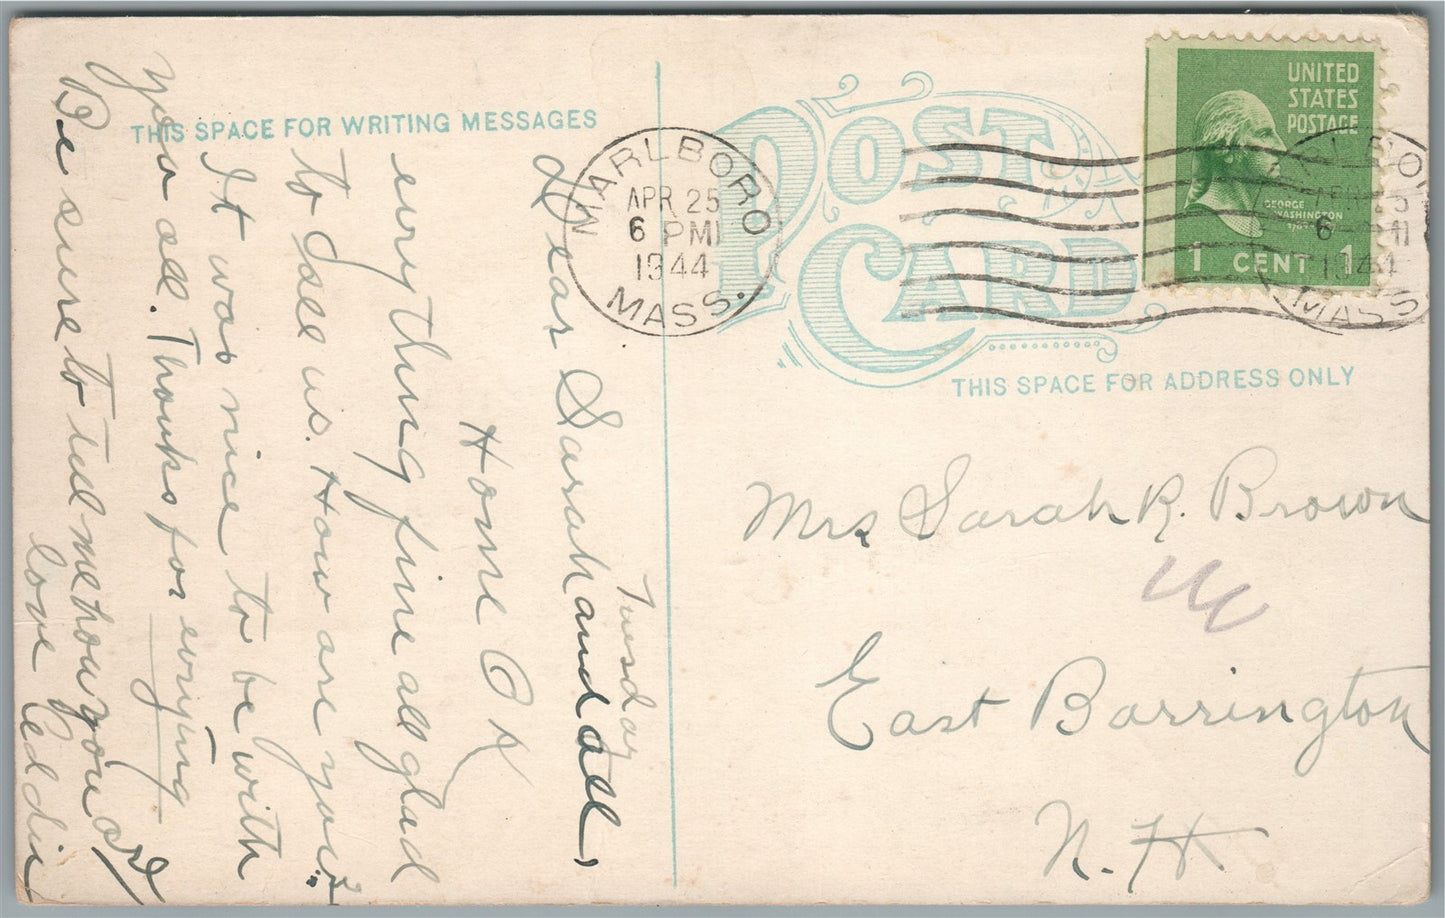 THIS SPACE FOR WRITING MESSAGES
Tuesday
Dear Sarah and all,
Home O K
everything fine all glad
to see us. How are you?
It was nice to be with
you all. Thanks for
everything
Be sure to tell me how you are
love Eddie
POST CARD
THIS SPACE FOR ADDRESS ONLY
MARLBORO
APR 25
6 PM
1944
MASS.
UNITED
STATES
POSTAGE
GEORGE
WASHINGTON
1 CENT 1
APR 25
6
1944
MASS
Mrs Sarah R. Brown
East Barrington
N. H.